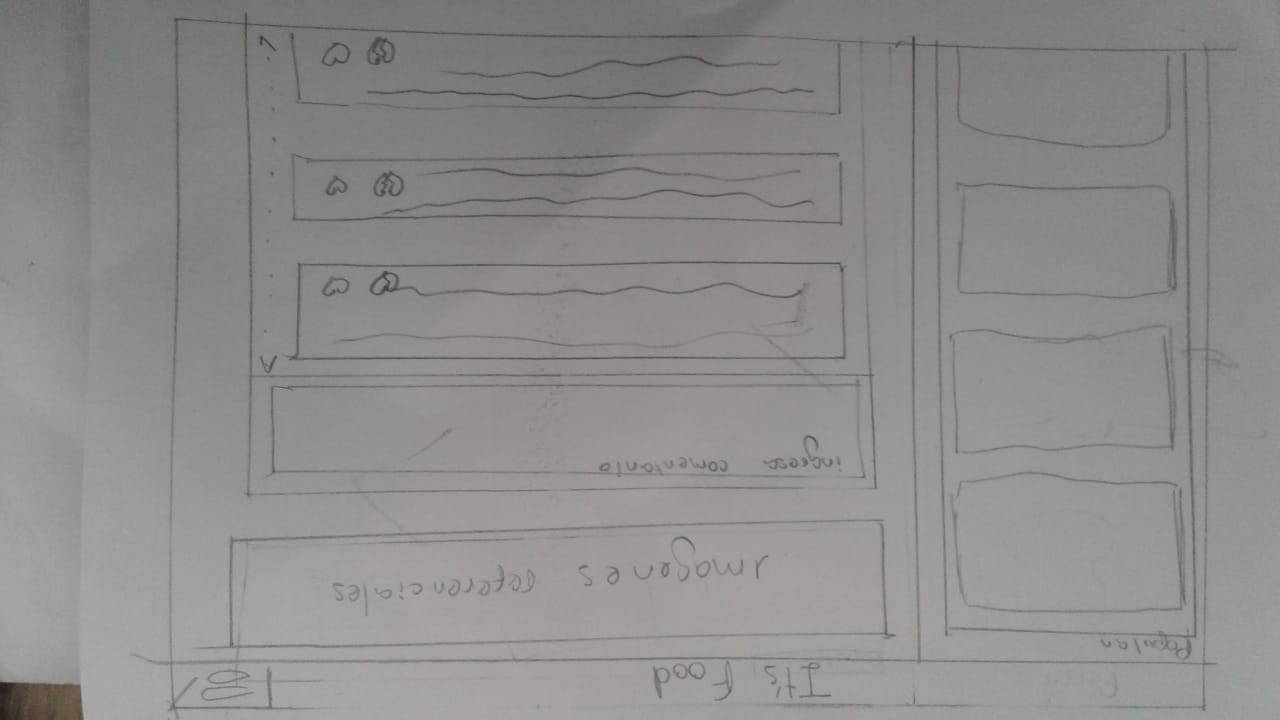 It's Food
Popular
imagenes referenciales
ingresa comentario